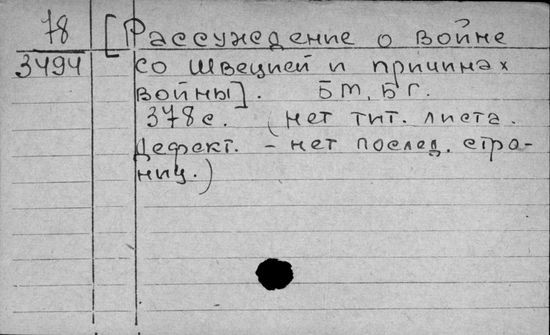 78
3494
[Рассуждение о войне
со Швецией и причинах
войны]. БМ, БГ.
378 с. (нет тит. листа.
Дефект. - нет послед. стра-
ниц.)